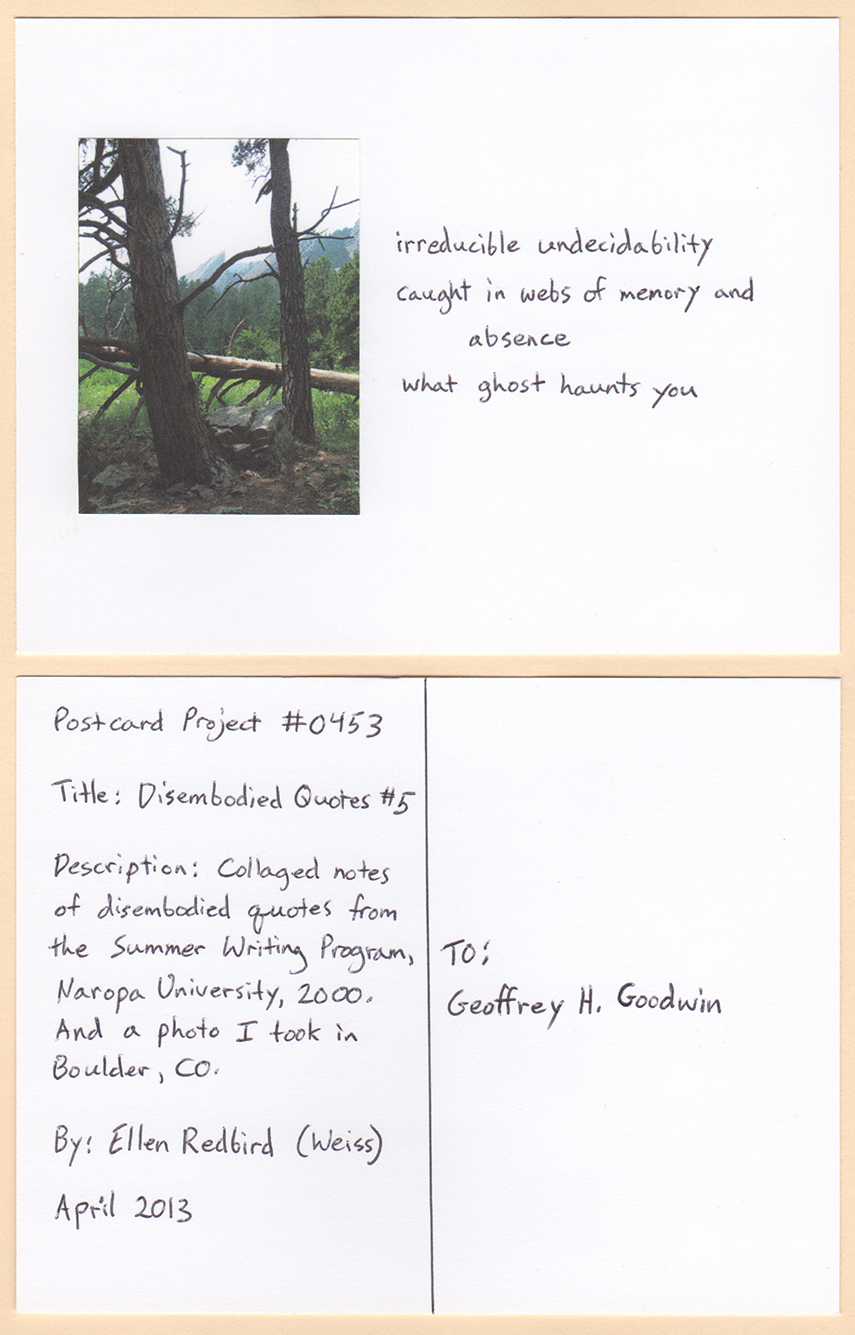 irreducible undecidability
caught in webs of memory and
absence
what ghost haunts you
Postcard Project #0453
Title: Disembodied Quotes #5
Description: Collaged notes
of disembodied quotes from
the Summer Writing Program,
Naropa University, 2000.
And a photo I took in
Boulder, CO.
By: Ellen Redbird (Weiss)
April 2013
TO:
Geoffrey H. Goodwin